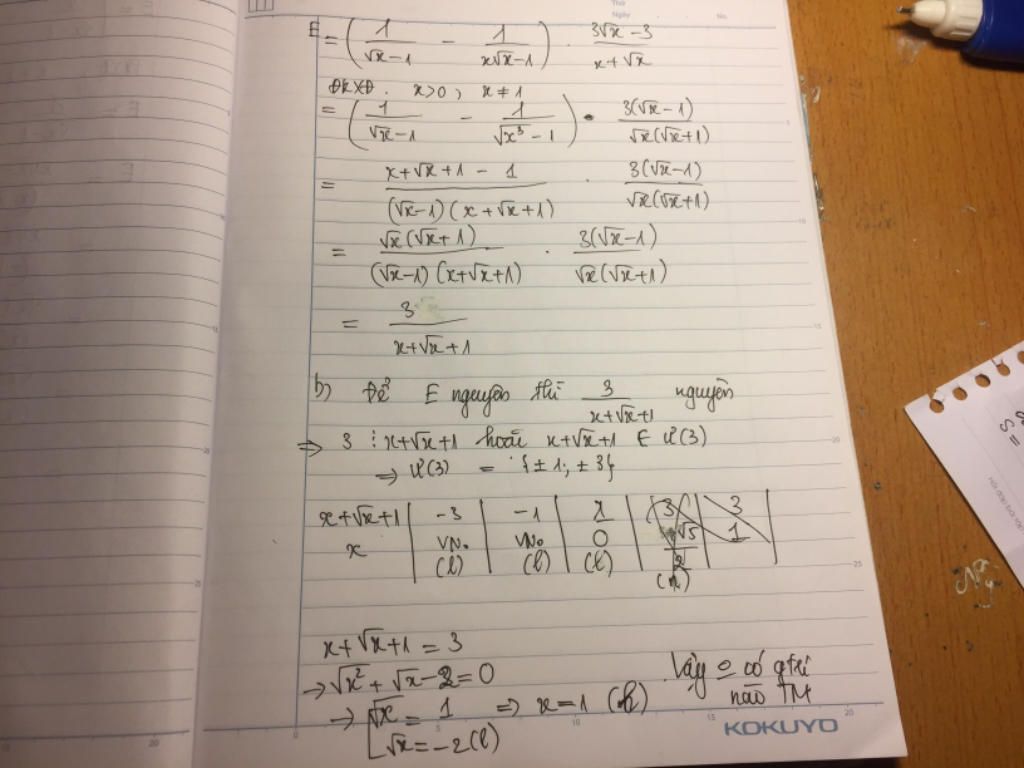 Thứ
Ngày No.
E = (1/(√x-1) - 1/(x√x-1)) . (3√x-3)/(x+√x)
ĐKXĐ. x>0; x≠1
= (1/(√x-1) - 1/(√x³-1)) . 3(√x-1)/(√x(√x+1))
= (x+√x+1-1)/((√x-1)(x+√x+1)) . 3(√x-1)/(√x(√x+1))
= √x(√x+1)/((√x-1)(x+√x+1)) . 3(√x-1)/(√x(√x+1))
= 3/(x+√x+1)
b) Để E nguyên thì 3/(x+√x+1) nguyên
=> 3 ⋮ x+√x+1 hoặc x+√x+1 ∈ Ư(3)
=> Ư(3) = {±1; ±3}
x+√x+1 | -3 | -1 | 1 | 3 | 3
x | VN. | VN. | 0 | | 1
(l) (l) (l)
x+√x+1 = 3
→ √x² + √x - 2 = 0
→ [√x = 1 => x=1 (l)
√x = -2 (l)
Vậy 0 có gtrị
nào TM
KOKUYO